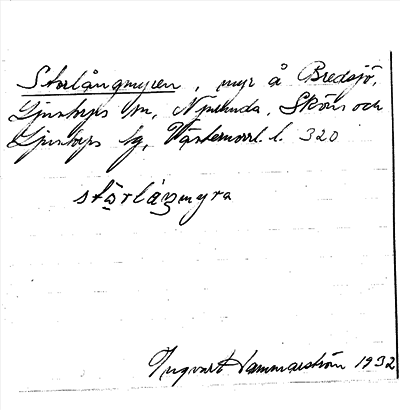 Storlångmyren, myr å Bredsjö,
Ljustorps sn, Njurunda, Sköns och
Ljustorps tg, Västernorrl. l. 320
stårlåŋmyra
Ingvar Hammarström 1932